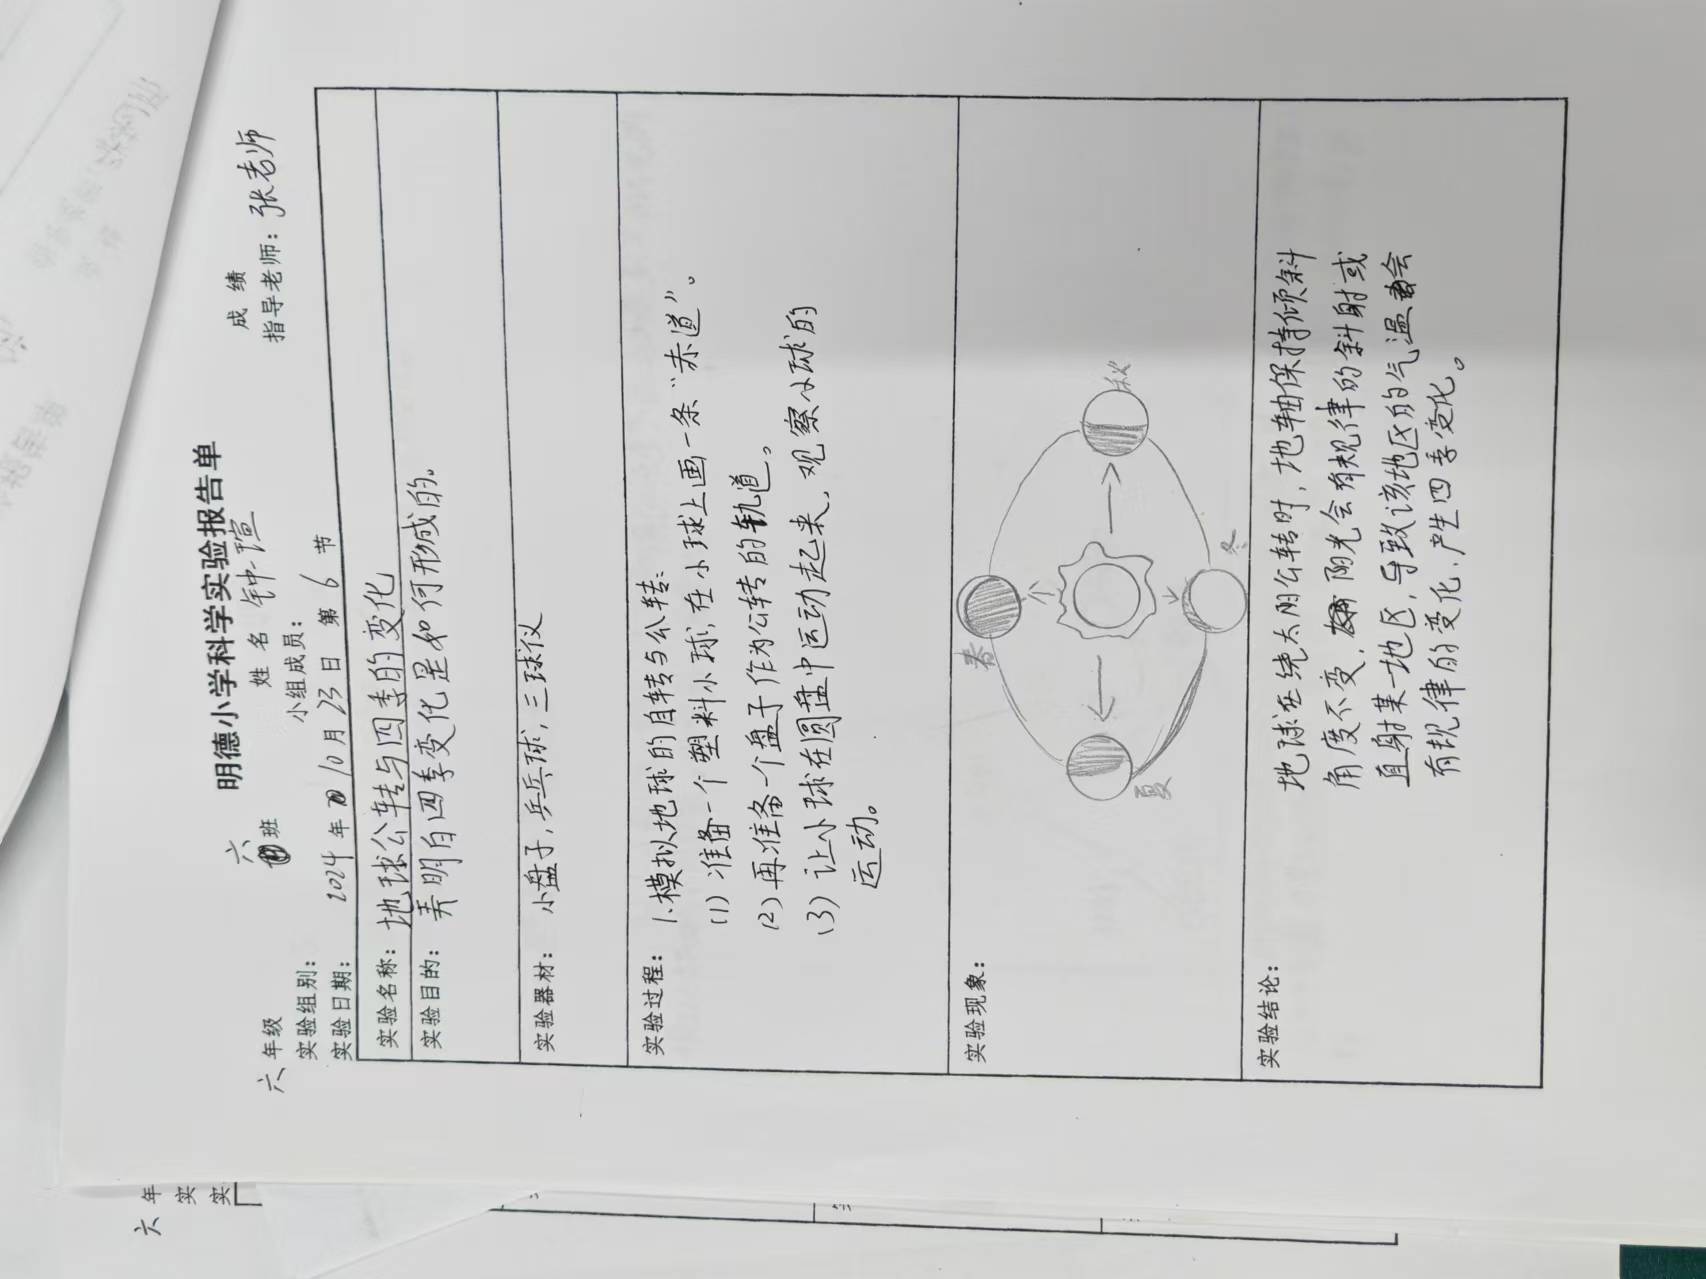 明德小学科学实验报告单
六年级 六班 姓名 钟瑄 成绩
实验组别： 小组成员： 指导老师：张老师
实验日期：2024年10月23日 第6节
实验名称：地球公转与四季的变化
实验目的：弄明白四季变化是如何形成的。
实验器材：小盘子，乒乓球，三球仪
实验过程：1.模拟地球的自转与公转：
(1)准备一个塑料小球，在小球上画一条“赤道”。
(2)再准备一个盘子作为公转的轨道。
(3)让小球在圆盘中运动起来，观察小球的
运动。
实验现象：
春
夏
秋
冬
实验结论：
地球在绕太阳公转时，地轴保持倾斜
角度不变，阳光会有规律的斜射或
直射某一地区，导致该地区的气温会
有规律的变化，产生四季变化。
六年
实
实